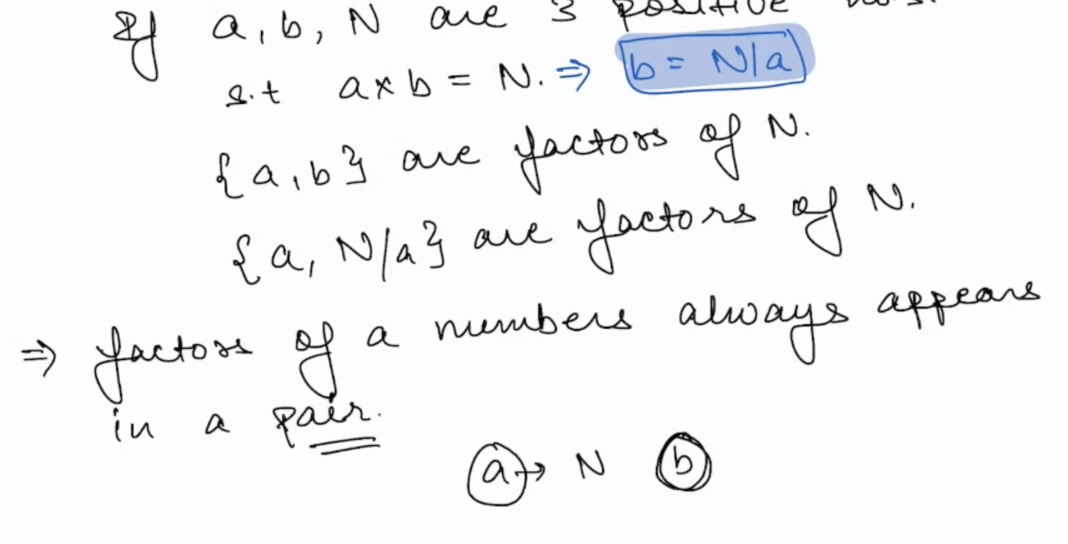 If a, b, N are 3 positive nos.
s.t a x b = N. ⇒ b = N/a
{a, b} are factors of N.
{a, N/a} are factors of N.
⇒ factors of a numbers always appears
in a pair.
a → N b